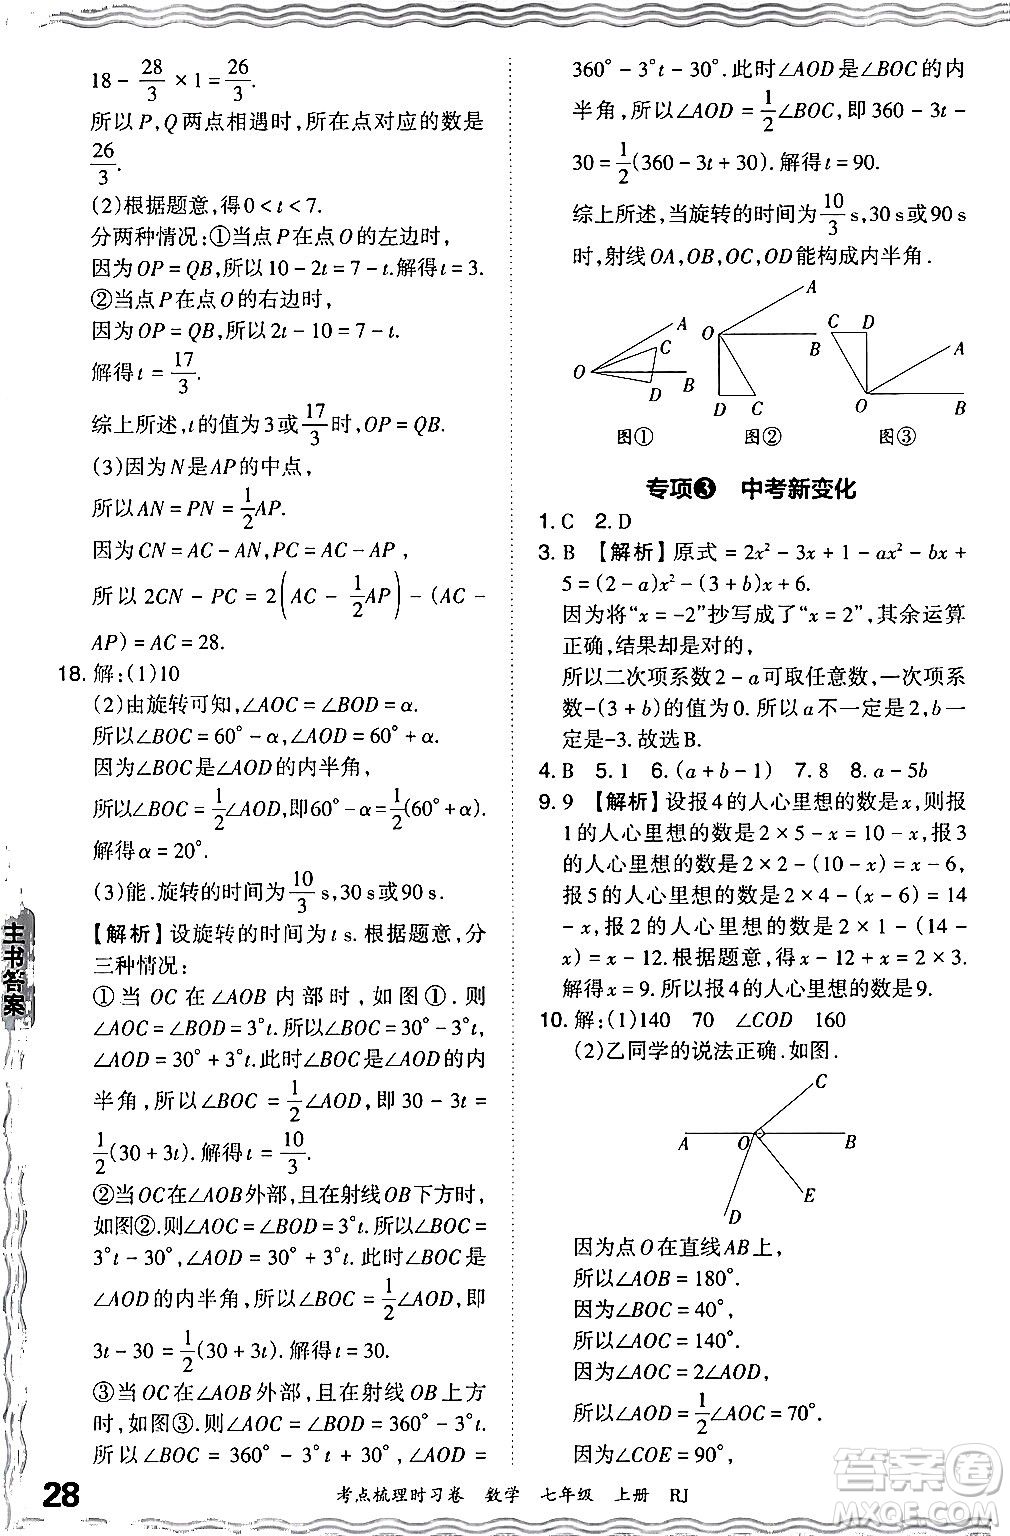 18 - 28/3 × 1 = 26/3.
所以P,Q两点相遇时,所在点对应的数是
26/3.
(2)根据题意,得0 < t < 7.
分两种情况:①当点P在点O的左边时,
因为OP = QB,所以10 - 2t = 7 - t.解得t = 3.
②当点P在点O的右边时,
因为OP = QB,所以2t - 10 = 7 - t.
解得t = 17/3.
综上所述,t的值为3或17/3时,OP = QB.
(3)因为N是AP的中点,
所以AN = PN = 1/2AP.
因为CN = AC - AN,PC = AC - AP,
所以2CN - PC = 2(AC - 1/2AP) - (AC -
AP) = AC = 28.
18. 解:(1)10
(2)由旋转可知,∠AOC = ∠BOD = α.
所以∠BOC = 60° - α,∠AOD = 60° + α.
因为∠BOC是∠AOD的内半角,
所以∠BOC = 1/2∠AOD,即60° - α = 1/2(60° + α).
解得α = 20°.
(3)能.旋转的时间为10/3 s,30 s或90 s.
【解析】设旋转的时间为t s.根据题意,分
三种情况:
①当OC在∠AOB内部时,如图①.则
∠AOC = ∠BOD = 3°t.所以∠BOC = 30° - 3°t,
∠AOD = 30° + 3°t.此时∠BOC是∠AOD的内
半角,所以∠BOC = 1/2∠AOD,即30 - 3t =
1/2(30 + 3t).解得t = 10/3.
②当OC在∠AOB外部,且在射线OB下方时,
如图②.则∠AOC = ∠BOD = 3°t.所以∠BOC =
3°t - 30°,∠AOD = 30° + 3°t.此时∠BOC是
∠AOD的内半角,所以∠BOC = 1/2∠AOD,即
3t - 30 = 1/2(30 + 3t).解得t = 30.
③当OC在∠AOB外部,且在射线OB上方
时,如图③.则∠AOC = ∠BOD = 360° - 3°t.
所以∠BOC = 360° - 3°t + 30°,∠AOD =
360° - 3°t - 30°.此时∠AOD是∠BOC的内
半角,所以∠AOD = 1/2∠BOC,即360 - 3t -
30 = 1/2(360 - 3t + 30).解得t = 90.
综上所述,当旋转的时间为10/3 s,30 s或90 s
时,射线OA,OB,OC,OD能构成内半角.
A C O B D
图①
A O B D C
图②
C D A O B
图③
专项❸ 中考新变化
1. C 2. D
3. B 【解析】原式 = 2x² - 3x + 1 - ax² - bx +
5 = (2 - a)x² - (3 + b)x + 6.
因为将“x = -2”抄写成了“x = 2”,其余运算
正确,结果却是对的,
所以二次项系数2 - a可取任意数,一次项系
数-(3 + b)的值为0.所以a不一定是2,b一
定是-3.故选B.
4. B 5. 1 6. (a + b - 1) 7. 8 8. a - 5b
9. 9 【解析】设报4的人心里想的数是x,则报
1的人心里想的数是2 × 5 - x = 10 - x,报3
的人心里想的数是2 × 2 - (10 - x) = x - 6,
报5的人心里想的数是2 × 4 - (x - 6) = 14
- x,报2的人心里想的数是2 × 1 - (14 -
x) = x - 12.根据题意,得x - 12 + x = 2 × 3.
解得x = 9.所以报4的人心里想的数是9.
10. 解:(1)140 70 ∠COD 160
(2)乙同学的说法正确.如图.
C A O B E D
因为点O在直线AB上,
所以∠AOB = 180°.
因为∠BOC = 40°,
所以∠AOC = 140°.
因为∠AOC = 2∠AOD,
所以∠AOD = 1/2∠AOC = 70°.
因为∠COE = 90°,
主书答案
28
考点梳理时习卷 数学 七年级 上册 RJ
答案圈
MXQE.COM